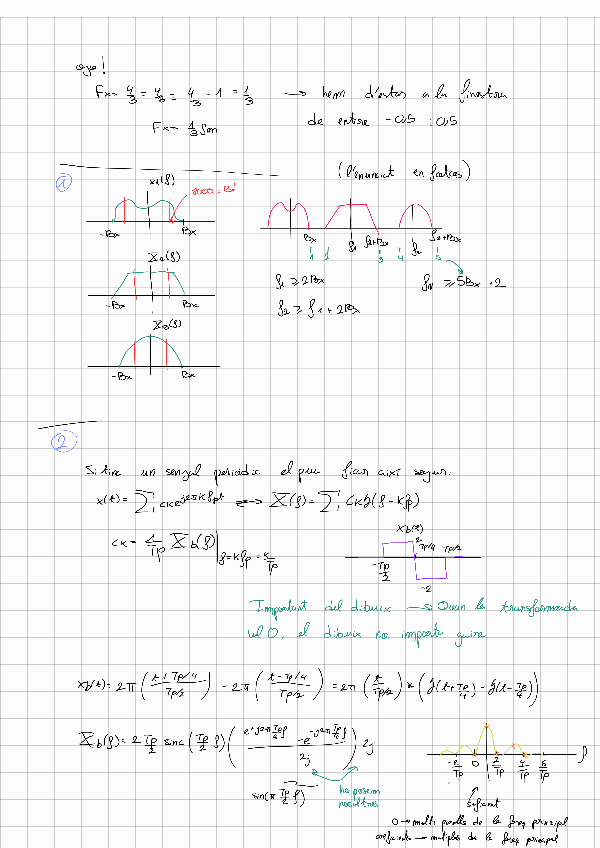 ojo!
Fx = 4/3 = 4/3 = 4/3 - 1 = 1/3 → hem d'estar a la finestra
de entre -0,5 : 0,5
Fx = 1/3 fm
(l'enunciat en faltes)
①
X1(f)
8000 · B
-Bx Bx
X2(f)
-Bx Bx
X3(f)
-Bx Bx
Bx f1 f1+Bx f2 f2+Bx
1 2 3 4 5
f1 ≥ 2Bx
f2 ≥ f1 + 2Bx
fm ≥ 5Bx · 2
②
Si tinc un senyal periòdic el puc ficar així segur:
x(t) = ∑ ck e^{j2πk fp t} ⟷ X(f) = ∑ ck δ(f - kfp)
ck = 1/Tp Xb(f) | f = kfp = k/Tp
Xb(t)
2 Tp/4 Tp/2
-Tp/2
-2
Important del dibuix → Quan la transformada
val 0, el dibuix no importa gaire
xb(t) = 2π((t + Tp/4)/(Tp/2)) - 2π((t - Tp/4)/(Tp/2)) = 2π(t/(Tp/2)) * (δ(t + Tp/4) - δ(t - Tp/4))
Xb(f) = 2 Tp/2 sinc(Tp/2 f) ((e^{+j2π Tp/4 f} - e^{-j2π Tp/4 f})/2j) 2j
sin(π Tp/2 f)
ho posem
nosaltres
-2/Tp 0 2/Tp 4/Tp 6/Tp f
0 → molts parells de la freq principal
coeficients → multiples de la freq principal